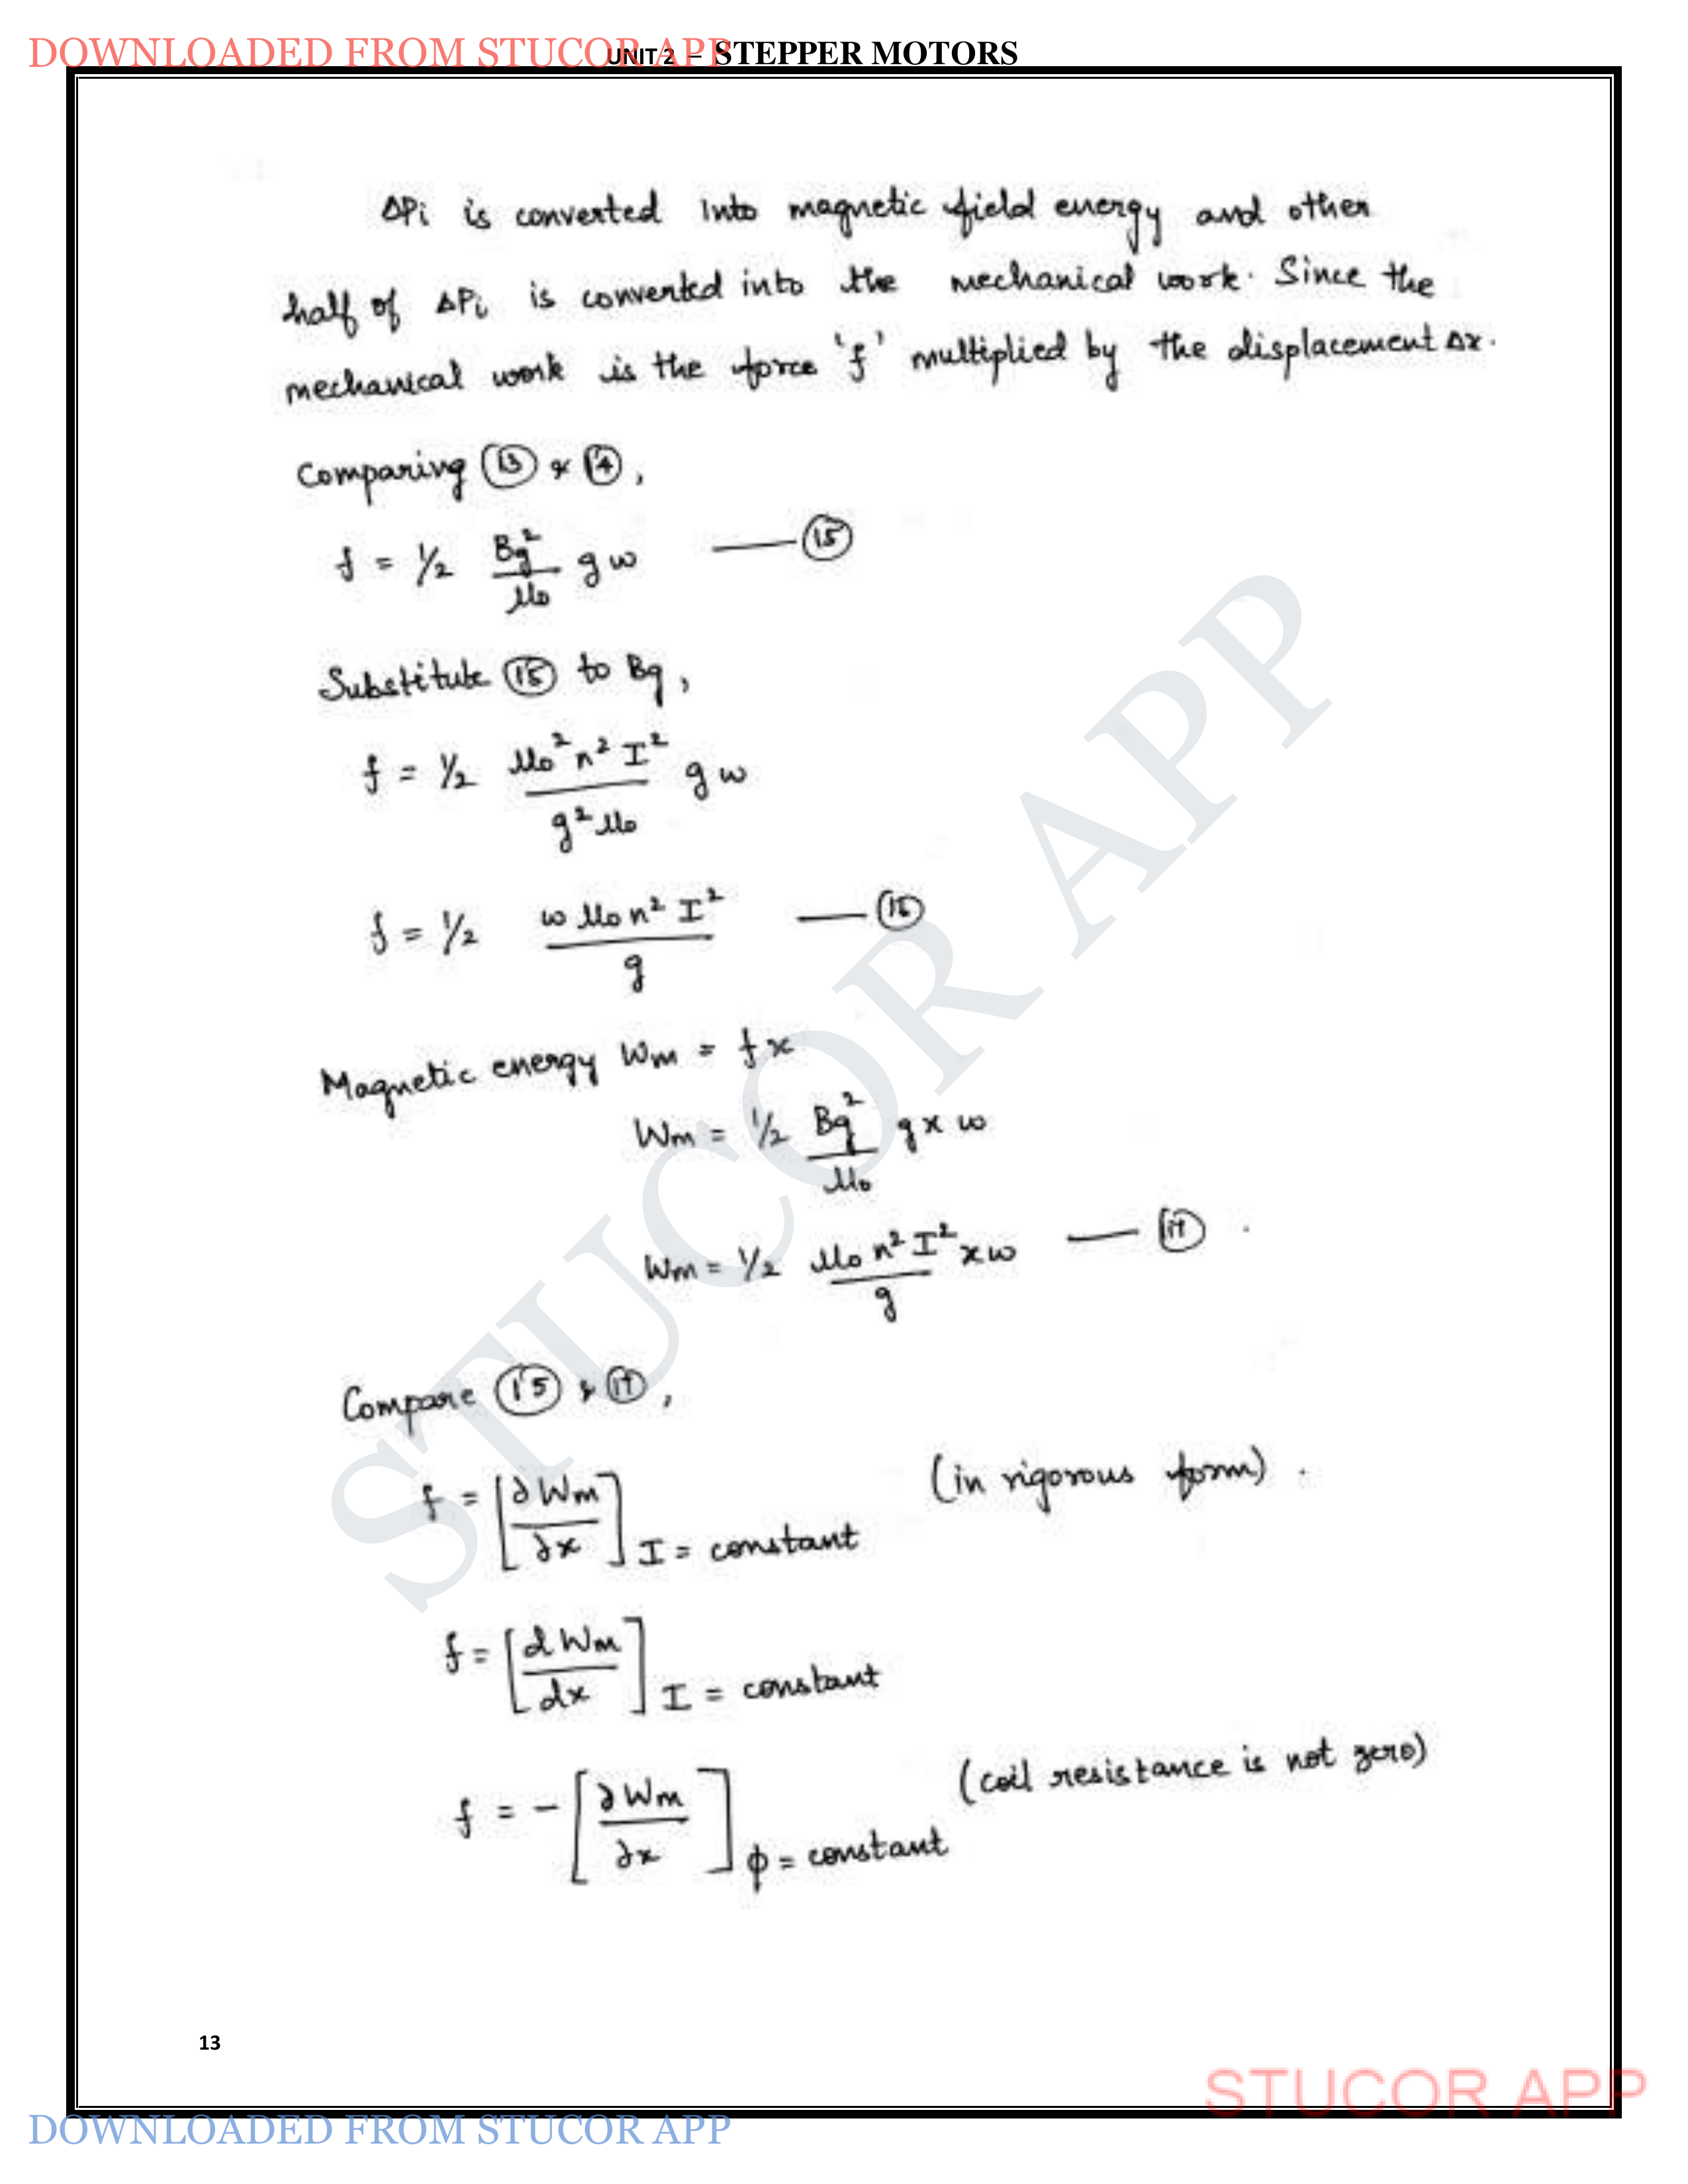 DOWNLOADED FROM STUCOR APP
UNIT 2 – STEPPER MOTORS
ΔPi is converted into magnetic field energy and other
half of ΔPi is converted into the mechanical work. Since the
mechanical work is the force 'f' multiplied by the displacement Δx.
Comparing (13) & (14),
f = 1/2 Bg²/μ0 g w —— (15)
Substitute (15) to Bg,
f = 1/2 μ0² n² I² / g² μ0 g w
f = 1/2 w μ0 n² I² / g —— (16)
Magnetic energy Wm = f x
Wm = 1/2 Bg²/μ0 g x w
Wm = 1/2 μ0 n² I² / g x w —— (17) .
Compare (15) & (17),
f = [∂Wm/∂x] I = constant (in rigorous form) .
f = [dWm/dx] I = constant
f = - [∂Wm/∂x] φ = constant (coil resistance is not zero)
STUCOR APP
13
STUCOR APP
DOWNLOADED FROM STUCOR APP